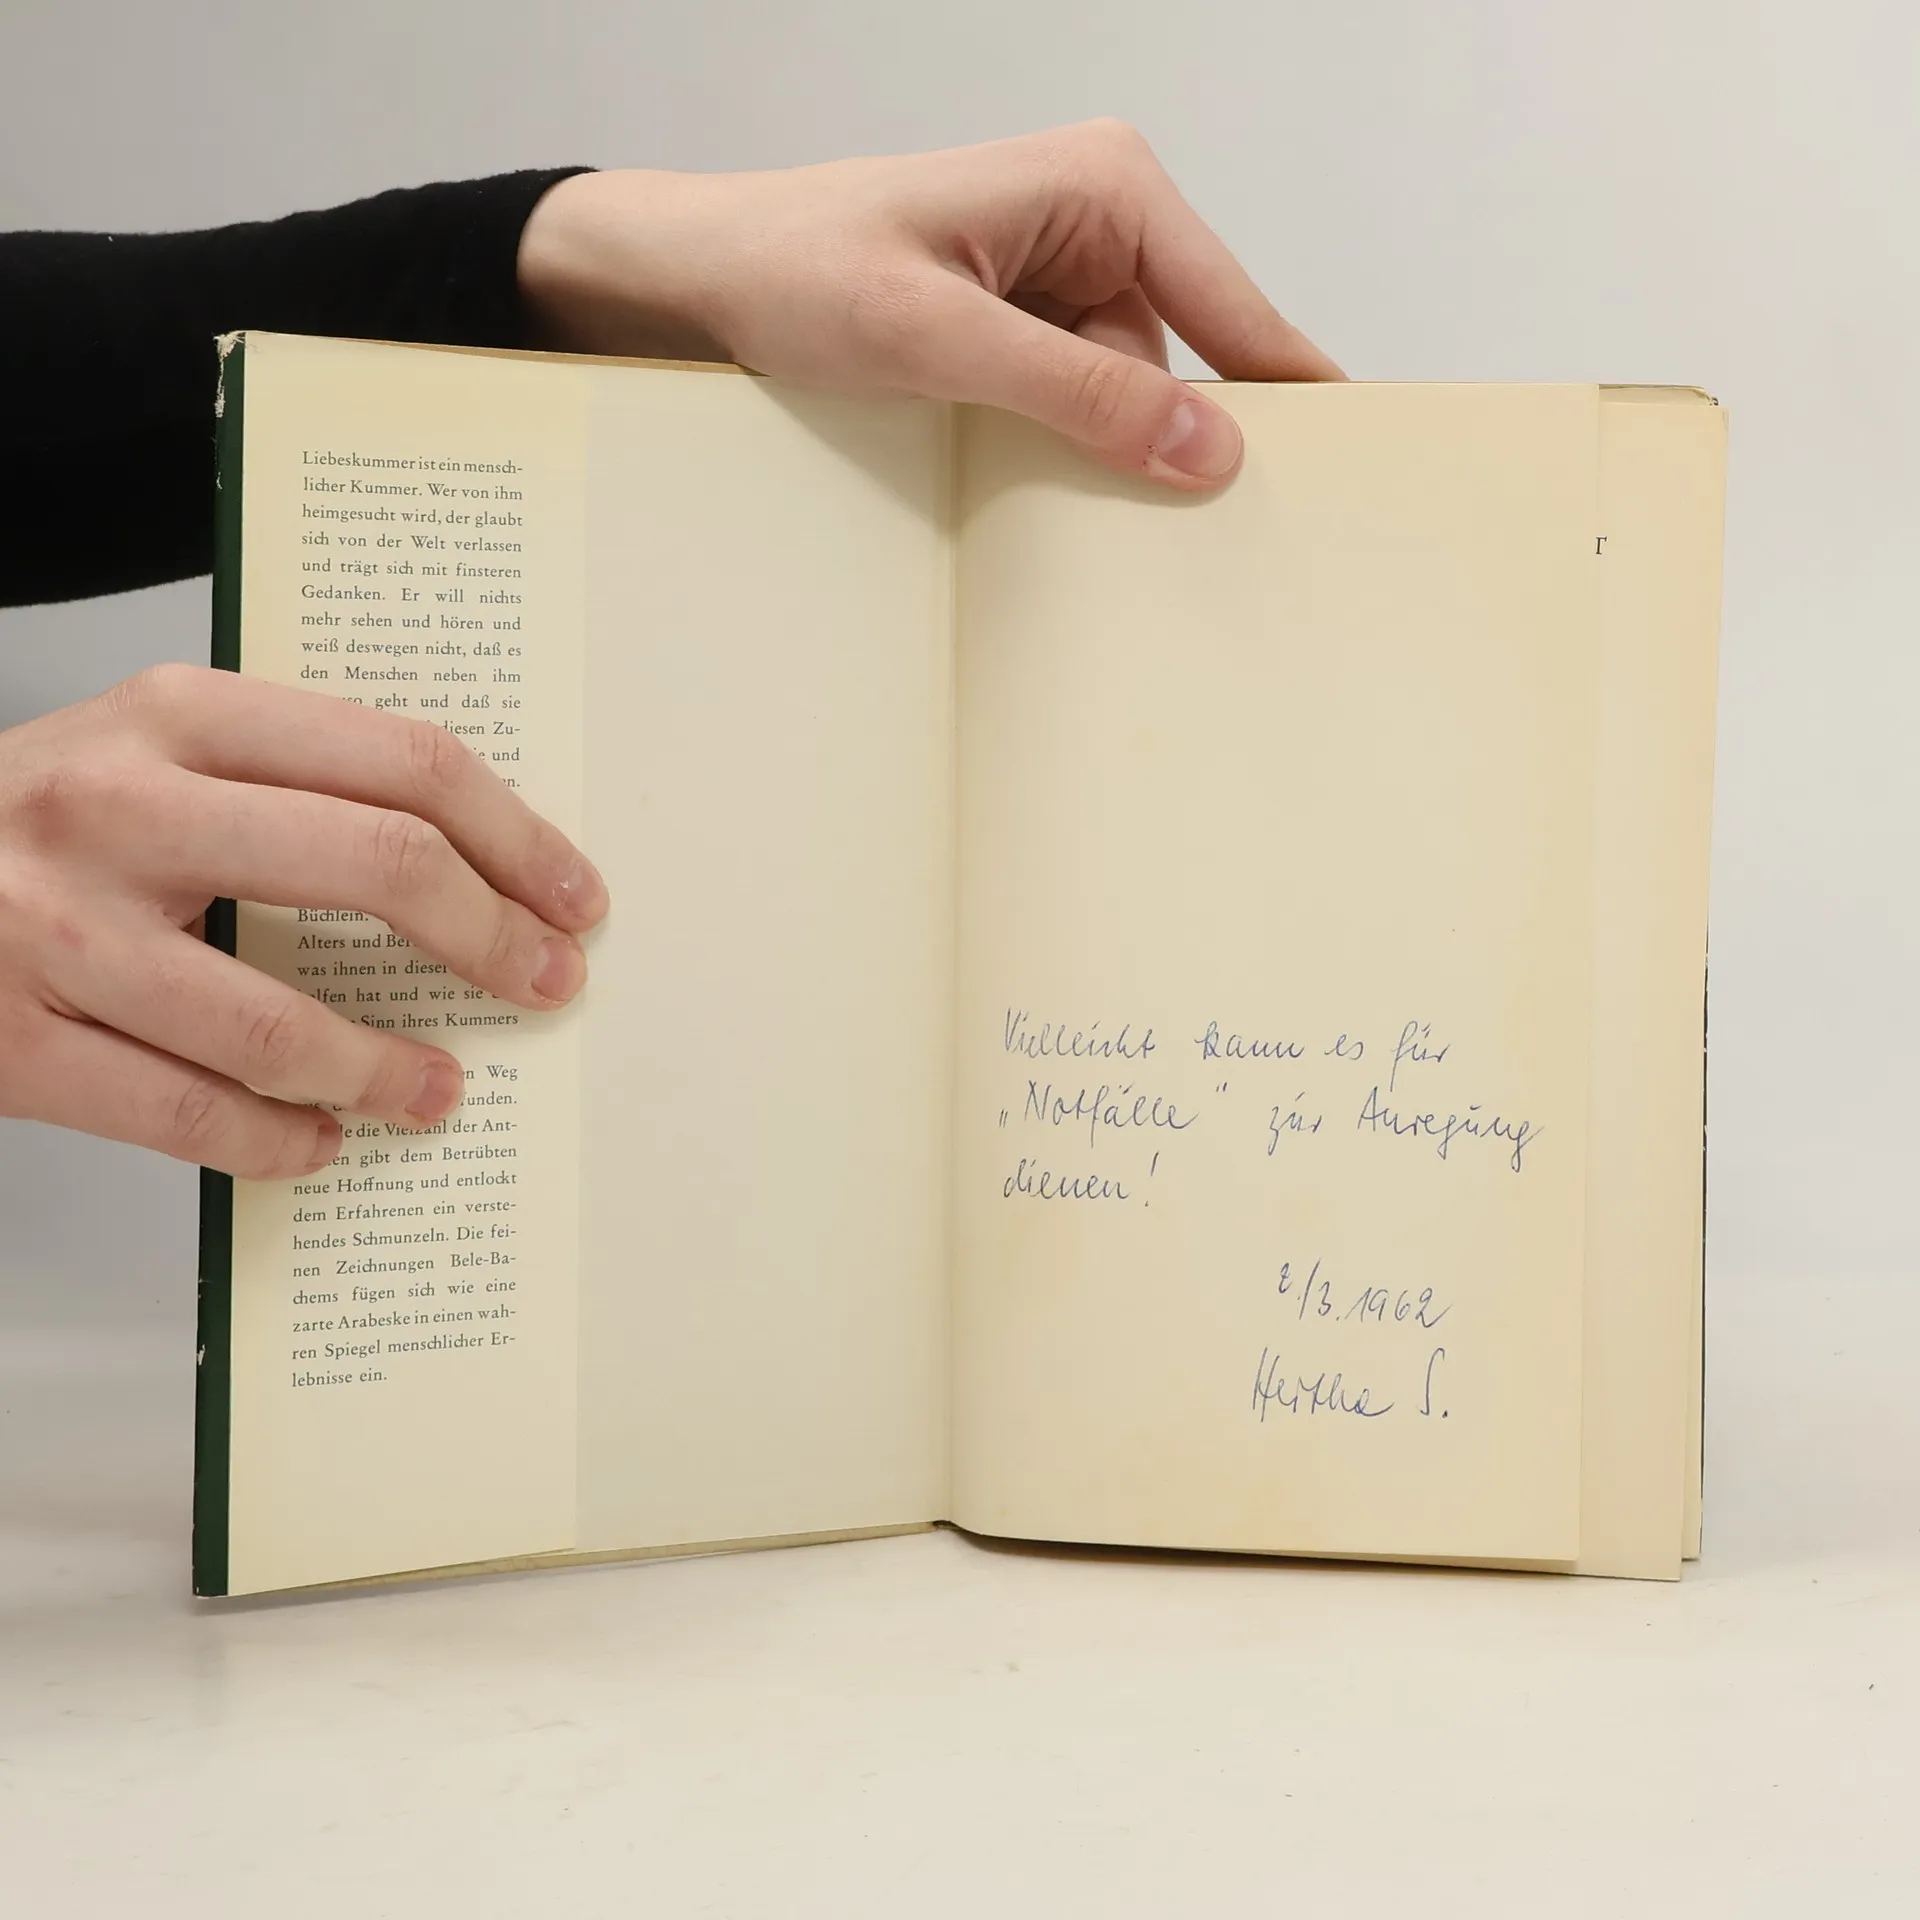 Liebeskummer ist ein mensch-
licher Kummer. Wer von ihm
heimgesucht wird, der glaubt
sich von der Welt verlassen
und trägt sich mit finsteren
Gedanken. Er will nichts
mehr sehen und hören und
weiß deswegen nicht, daß es
den Menschen neben ihm
geht und daß sie
diesen Zu-
und
Büchlein.
Alters und
was ihnen in
hat und wie sie
Sinn ihres Kummers
Weg
die Vielzahl der Ant-
gibt dem Betrübten
neue Hoffnung und entlockt
dem Erfahrenen ein verste-
hendes Schmunzeln. Die fei-
nen Zeichnungen Bele-Ba-
chems fügen sich wie eine
zarte Arabeske in einen wah-
ren Spiegel menschlicher Er-
lebnisse ein.
Vielleicht kann es für
„Notfälle" zur Anregung
dienen!
2./3. 1962
Hertha S.
T